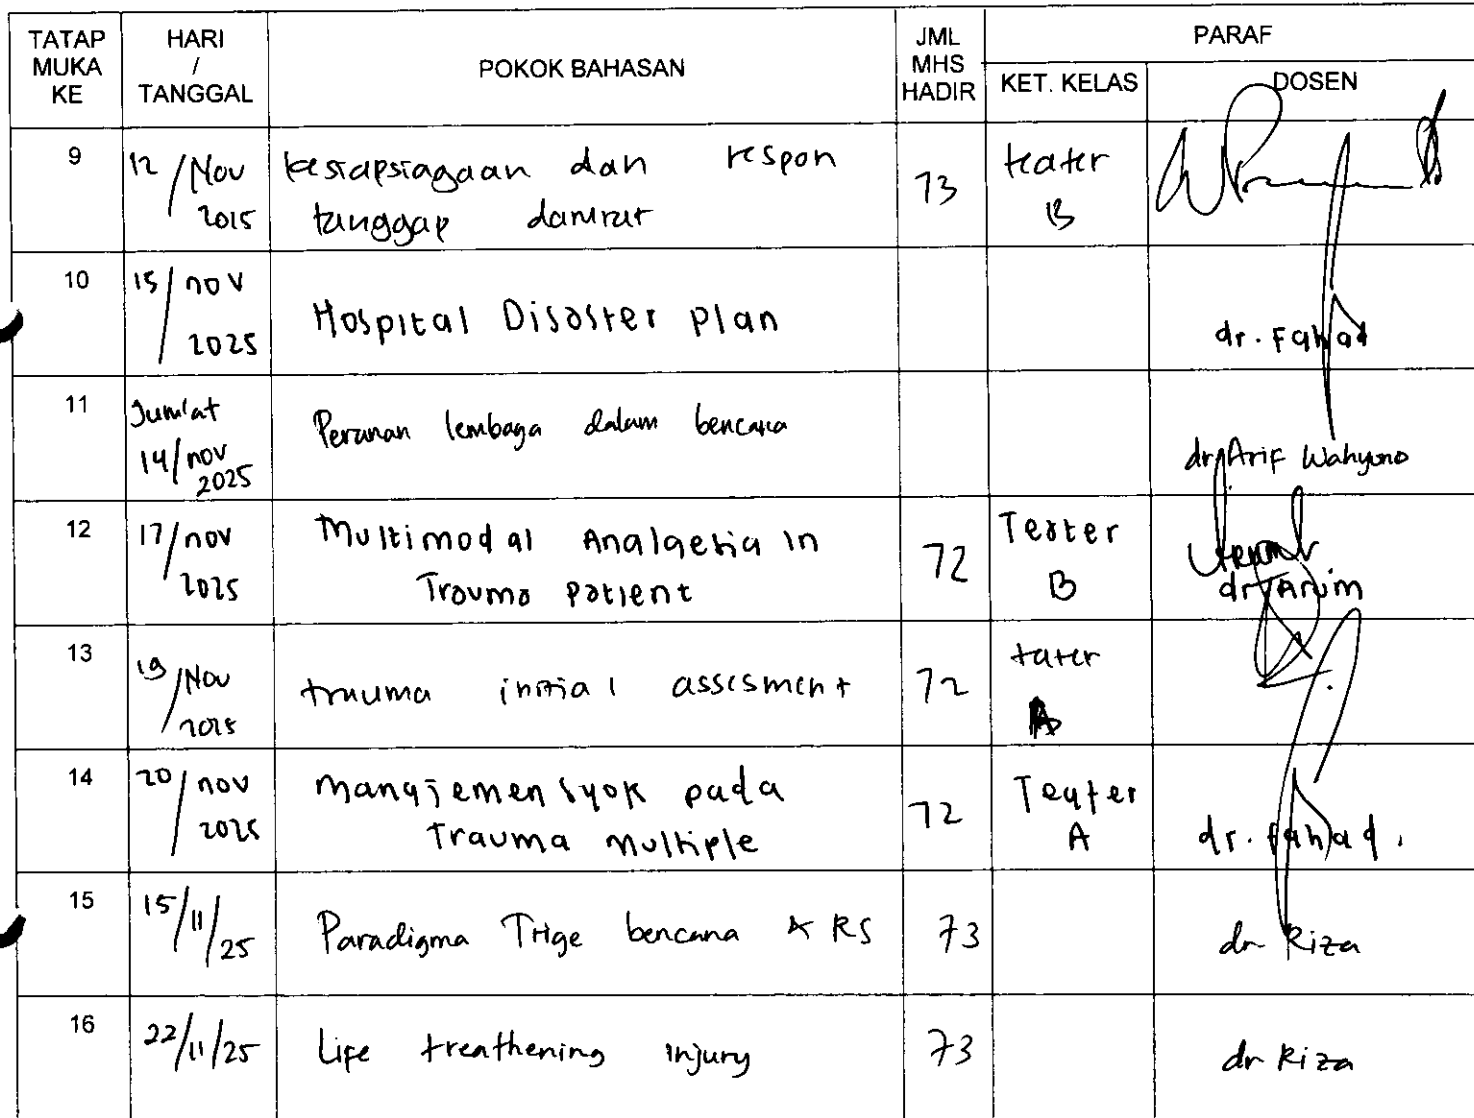 TATAP MUKA KE | HARI / TANGGAL | POKOK BAHASAN | JML MHS HADIR | PARAF
KET. KELAS | DOSEN
9 | 12/Nov 2015 | kesiapsiagaan dan respon tanggap darurat | 73 | teater B
10 | 15/nov 2025 | Hospital Disaster plan | dr. Fahad
11 | Jum'at 14/nov 2025 | Peranan lembaga dalam bencana | dr Arif Wahyono
12 | 17/nov 2025 | Multimodal Analgesia in Trauma patient | 72 | Teater B | dr
13 | 19/Nov 2015 | trauma initial assesment | 72 | tater A
14 | 20/nov 2025 | manajemen syok pada Trauma multiple | 72 | Teater A | dr. Fahad.
15 | 15/11/25 | Paradigma Trige bencana & RS | 73 | dr Riza
16 | 22/11/25 | Life treathening injury | 73 | dr Riza